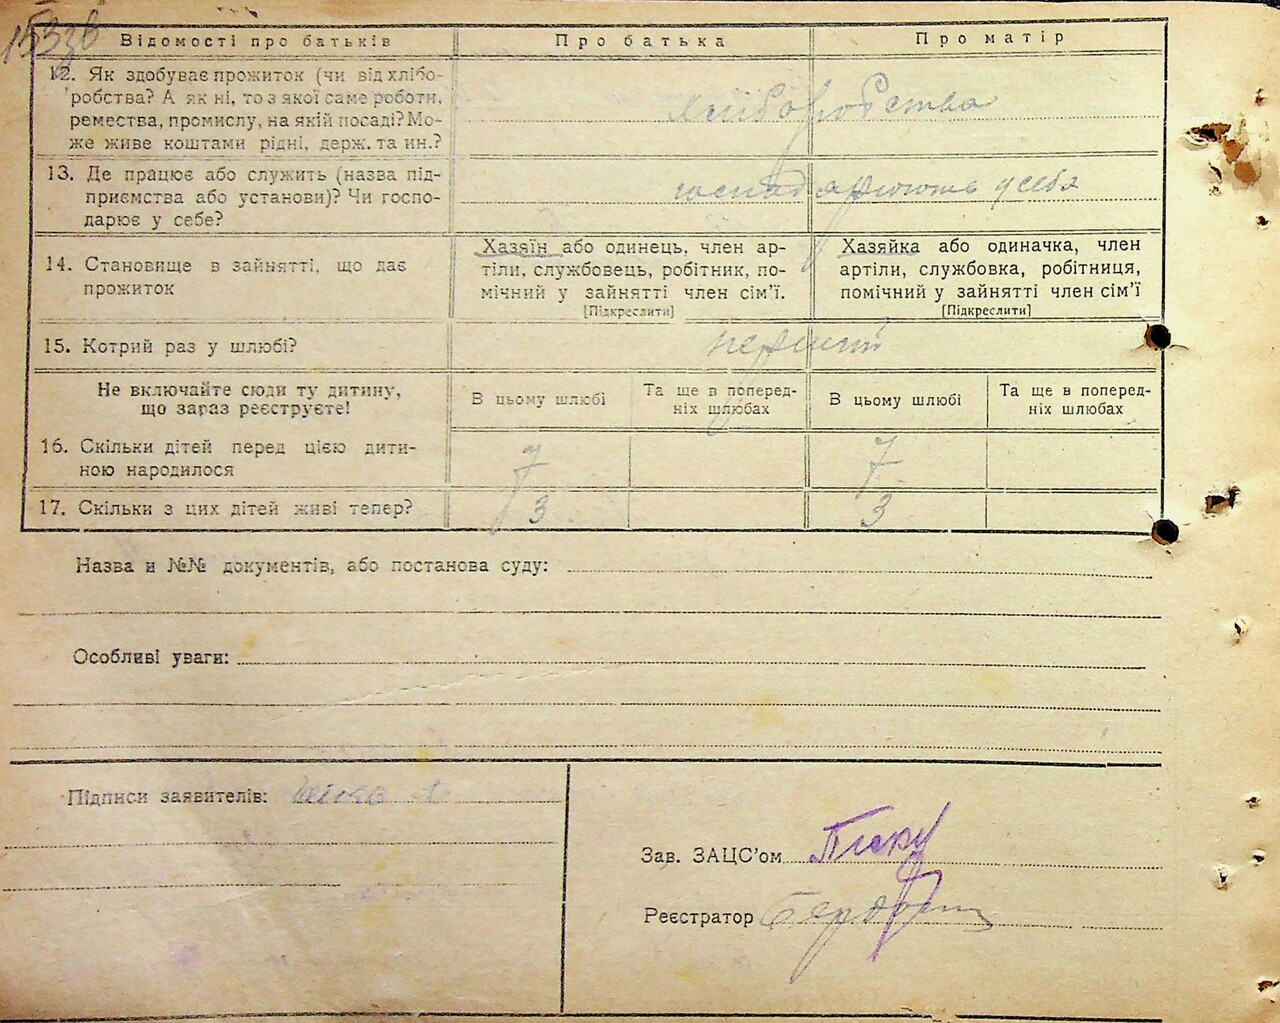 153зв
Відомості про батьків
Про батька
Про матір
12. Як здобуває прожиток (чи від хлібо-
робства? А як ні, то з якої саме роботи,
ремества, промислу, на якій посаді? Мо-
же живе коштами рідні, держ. та ин.?
хліборобства
13. Де працює або служить (назва під-
приємства або установи)? Чи госпо-
дарює у себе?
у себя
14. Становище в зайнятті, що дає
прожиток
Хазяїн або одинець, член ар-
тіли, службовець, робітник, по-
мічний у зайнятті член сім'ї.
[Підкреслити]
Хазяйка або одиначка, член
артіли, службовка, робітниця,
помічний у зайнятті член сім'ї
[Підкреслити]
15. Котрий раз у шлюбі?
Не включайте сюди ту дитину,
що зараз реєструєте!
В цьому шлюбі
Та ще в поперед-
ніх шлюбах
В цьому шлюбі
Та ще в поперед-
ніх шлюбах
16. Скільки дітей перед цією дити-
ною народилося
7
7
17. Скільки з цих дітей живі тепер?
3
3
Назва и №№ документів, або постанова суду:
Особливі уваги:
Підписи заявителів:
Зав. ЗАЦС'ом
Реєстратор